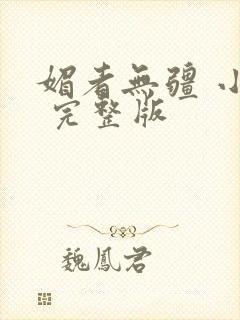 媚者無疆 小
完整版
魏鳳君